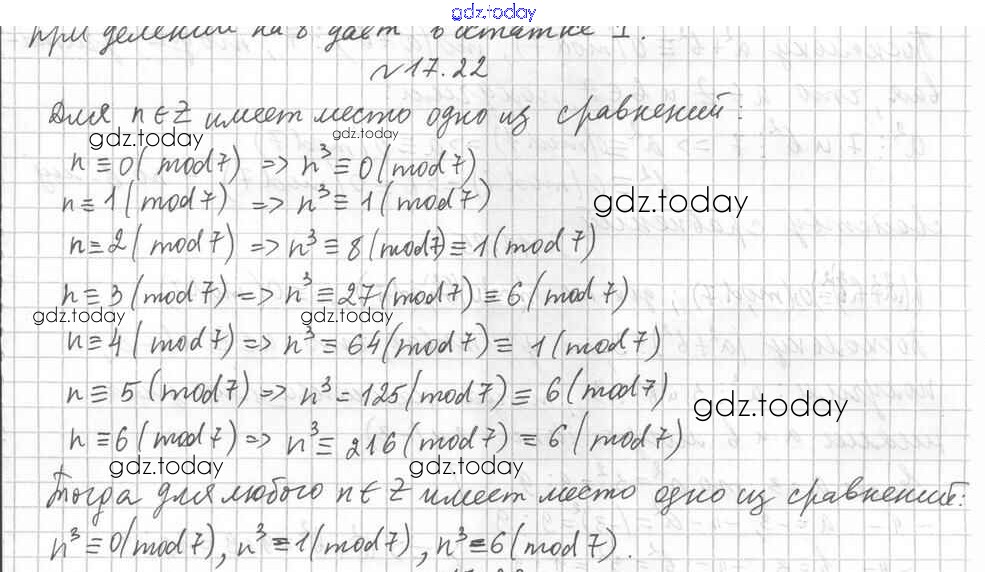 gdz.today
при делении на 8 даёт в остатке 1.
№17.22
Для n∈Z имеет место одно из сравнений:
gdz.today gdz.today
n ≡ 0(mod 7) => n³ ≡ 0(mod 7)
n ≡ 1(mod 7) => n³ ≡ 1(mod 7)
gdz.today
n ≡ 2(mod 7) => n³ ≡ 8(mod 7) ≡ 1(mod 7)
n ≡ 3(mod 7) => n³ ≡ 27(mod 7) ≡ 6(mod 7)
gdz.today gdz.today
n ≡ 4(mod 7) => n³ ≡ 64(mod 7) ≡ 1(mod 7)
n ≡ 5(mod 7) => n³ = 125(mod 7) ≡ 6(mod 7)
gdz.today
n ≡ 6(mod 7) => n³ ≡ 216(mod 7) ≡ 6(mod 7)
gdz.today gdz.today
Тогда для любого n∈Z имеет место одно из сравнений:
n³ ≡ 0(mod 7), n³ ≡ 1(mod 7), n³ ≡ 6(mod 7).